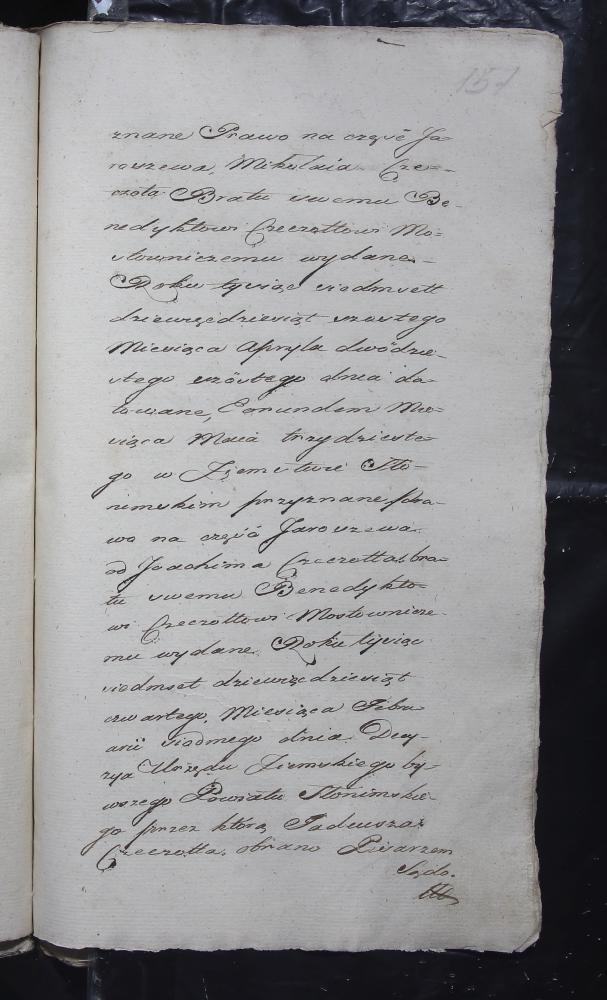 157
znane Prawo na częsć Ja=
roszewa, Mikołaia Cze=
czota Bratu swemu Be-
nedyktowi Czeczottowi Mo=
stowniczemu wydane.-
Roku tysiąc siedmsett
dziewięćdziesiąt szostego
Miesiąca Apryla dwódzie-
stego szóstego dnia da-
towane, Eorundem Mie-
siąca Maia trzydzieste-
go w Ziemstwie Sło-
nimskim przyznane pra-
wo na częsć Jaroszewa
od Joachima Czeczotta bra-
tu swemu Benedykto-
wi Czeczottowi Mostownicze-
mu wydane. Roku tysiąc
siedmset dziewięćdziesiąt
czwartego, Miesiąca Febru
arii siodmego dnia. Decy-
zya Urzędu Ziemskiego by-
wszego Powiatu Słonimskie-
go przez którą Tadeusza
Czeczotta, obrano Pisarzem
Sądo.